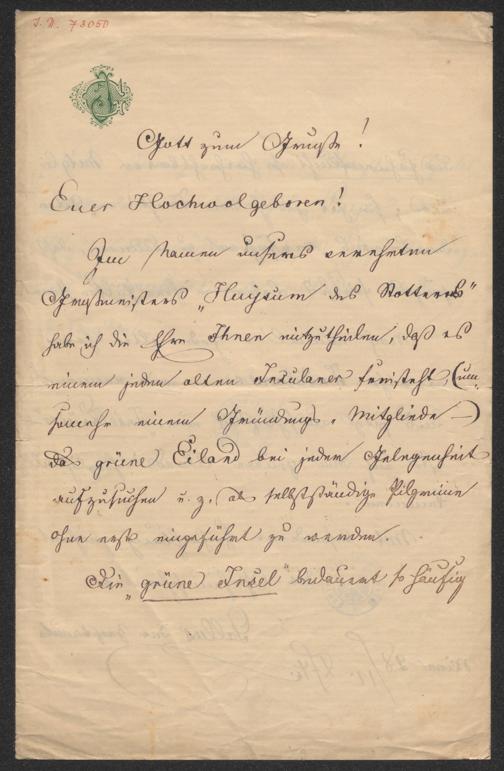 I. N. 73050
Gott zum Gruße!
Euer Hochwolgeboren!
Im Namen unseres verehrten
Großmeisters „ des "
habe ich die Ehre Ihnen mitzutheilen, daß es
einem jeden alten Insulaner freisteht, (um-
somehr einem Gründungs-Mitgliede –)
das grüne Eiland bei jeder Gelegenheit
aufzusuchen u. z. als selbstständige Pilgerine
ohne erst eingeführt zu werden.
Die „grüne Insel" bedauert so häufig